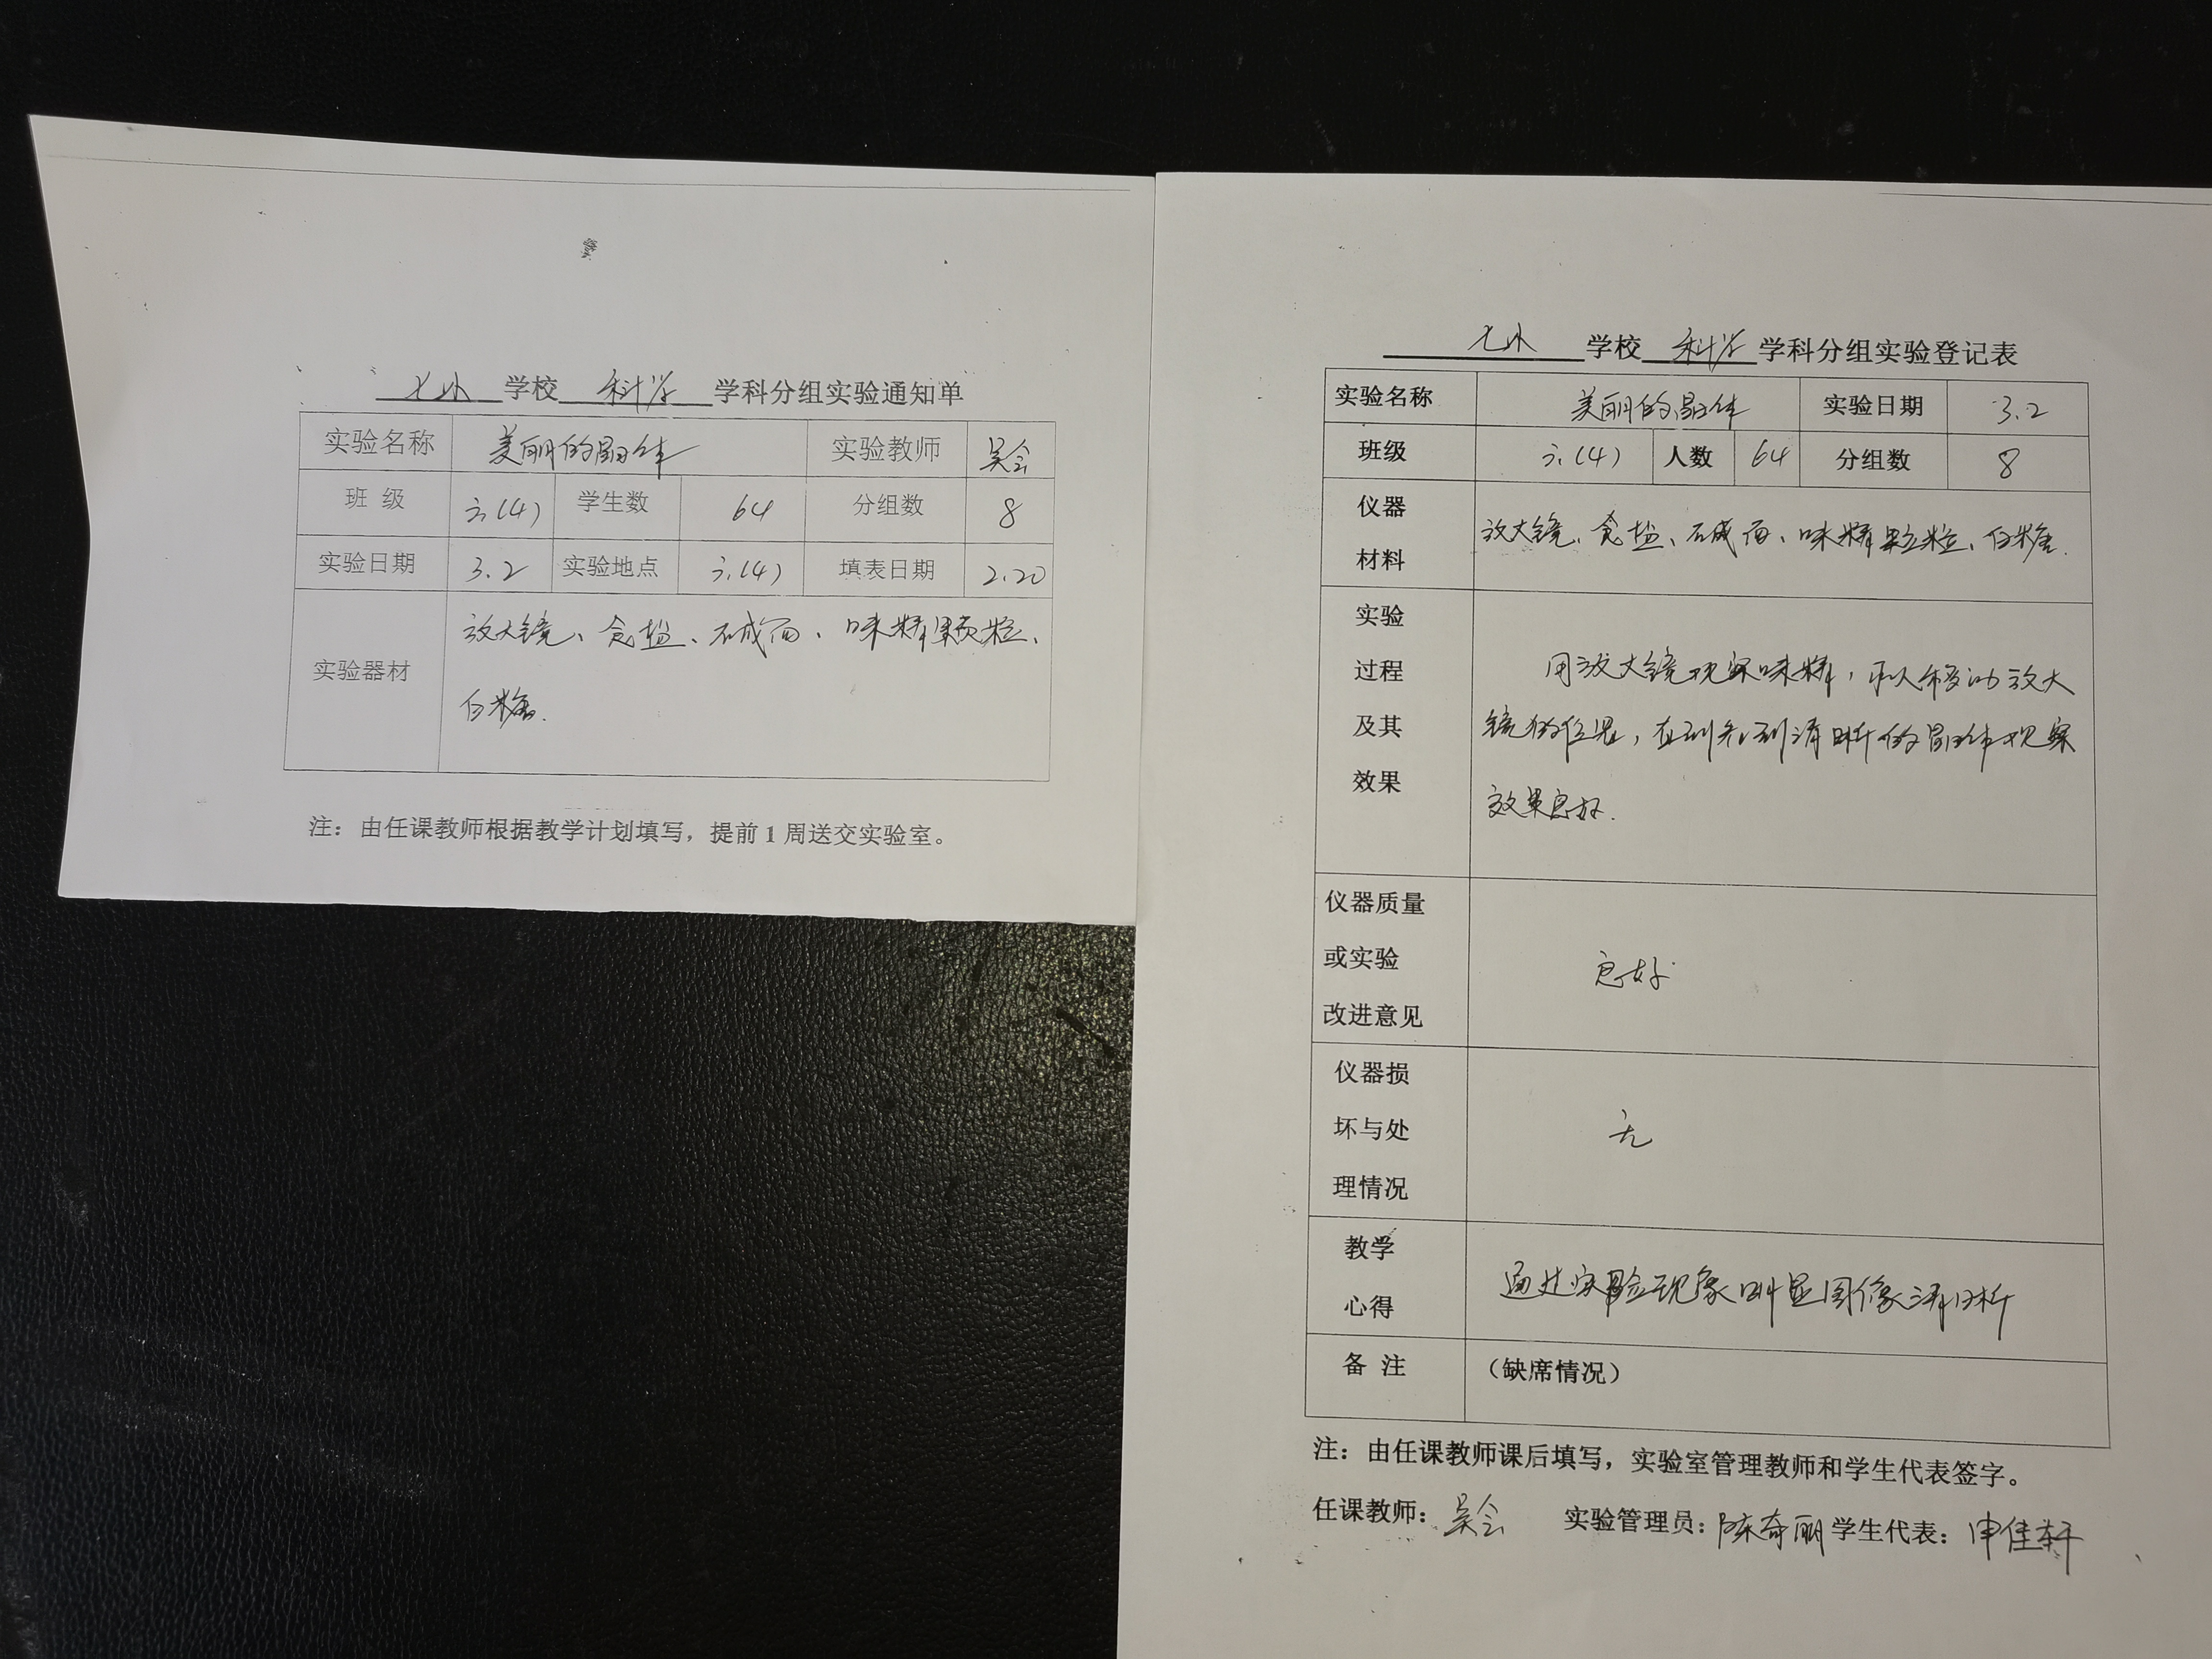 七小 学校 科学 学科分组实验通知单
实验名称 美丽的晶体 实验教师 吴会
班 级 六(4) 学生数 64 分组数 8
实验日期 3.2 实验地点 六(4) 填表日期 2.20
实验器材 放大镜、食盐、碱面、味精颗粒、
白糖.
注：由任课教师根据教学计划填写，提前1周送交实验室。
七小 学校 科学 学科分组实验登记表
实验名称 美丽的晶体 实验日期 3.2
班级 六(4) 人数 64 分组数 8
仪器
材料
放大镜、食盐、碱面、味精颗粒、白糖.
实验
过程
及其
效果
用放大镜观察味精，移动放大
镜的位置，直到看到清晰的晶体观察
效果良好.
仪器质量
或实验
改进意见
良好
仪器损
坏与处
理情况
无
教学
心得
通过实验现象明显图像清晰
备 注 （缺席情况）
注：由任课教师课后填写，实验室管理教师和学生代表签字。
任课教师：吴会 实验管理员：陈奇丽 学生代表：申佳轩